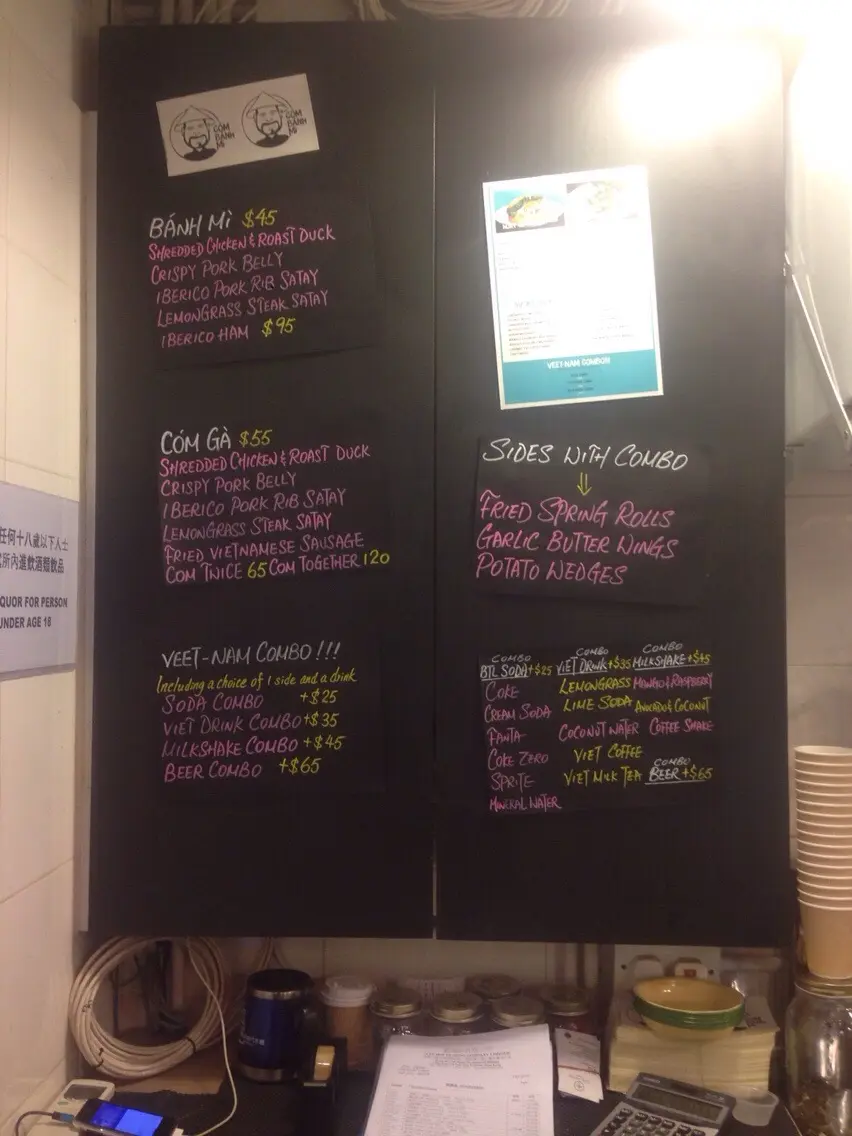 CÓM
BÁNH
MÌ
CÓM
BÁNH
MÌ
BÁNH MÌ $45
SHREDDED CHICKEN & ROAST DUCK
CRISPY PORK BELLY
IBERICO PORK RIB SATAY
LEMONGRASS STEAK SATAY
IBERICO HAM $95
CÓM GÀ $55
SHREDDED CHICKEN & ROAST DUCK
CRISPY PORK BELLY
IBERICO PORK RIB SATAY
LEMONGRASS STEAK SATAY
FRIED VIETNAMESE SAUSAGE
COM TWICE 65 COM TOGETHER 120
VEET-NAM COMBO!!!
Including a choice of 1 side and a drink
SODA COMBO +$25
VIET DRINK COMBO +$35
MILKSHAKE COMBO +$45
BEER COMBO +$65
VEET-NAM COMBOS
SIDES WITH COMBO
FRIED SPRING ROLLS
GARLIC BUTTER WINGS
POTATO WEDGES
COMBO
BTL SODA +$25
COKE
CREAM SODA
FANTA
COKE ZERO
SPRITE
MINERAL WATER
COMBO
VIET DRINK +$35
LEMONGRASS
LIME SODA
COCONUT WATER
VIET COFFEE
VIET MILK TEA
COMBO
MILKSHAKE +$45
MANGO & RASPBERRY
AVOCADO & COCONUT
COFFEE SHAKE
COMBO
BEER +$65
任何十八歲以下人士
所內進飲酒類飲品
QUOR FOR PERSON
UNDER AGE 18